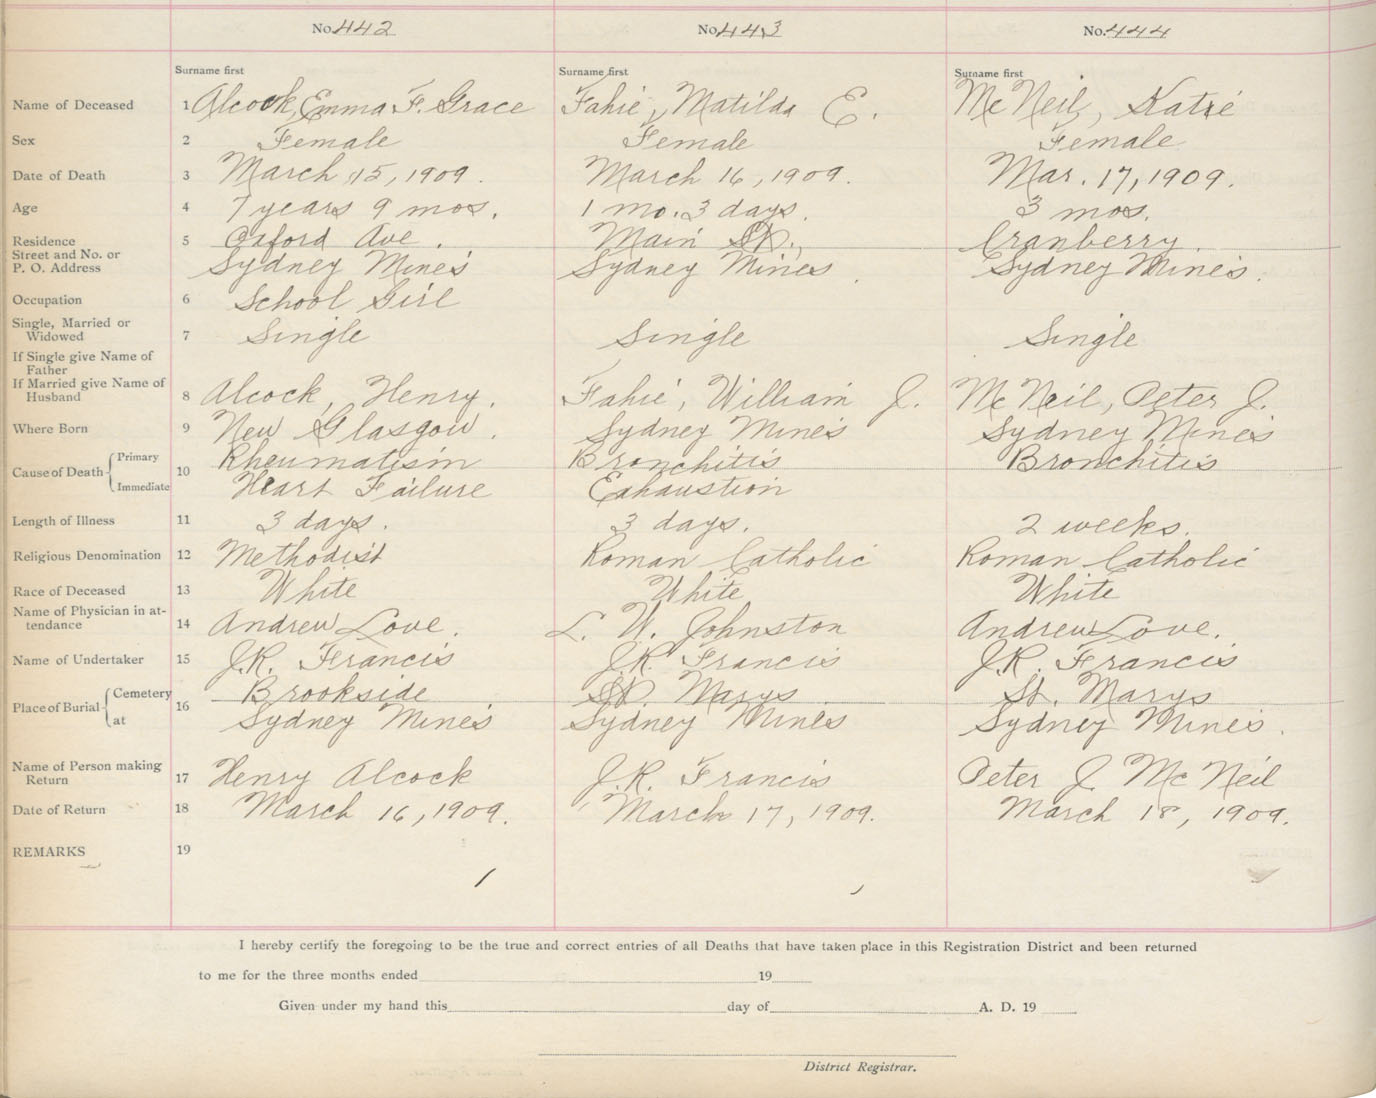 No. 442 No. 443 No. 444
Surname first Surname first Surname first
Name of Deceased 1 Alcock, Emma F. Grace Fahie, Matilda E. McNeil, Katie
Sex 2 Female Female Female
Date of Death 3 March 15, 1909. March 16, 1909. Mar. 17, 1909.
Age 4 7 years 9 mos. 1 mo. 3 days. 3 mos.
Residence 5 Oxford Ave. Main St., Cranberry.
Street and No. or
P. O. Address Sydney Mines Sydney Mines. Sydney Mines.
Occupation 6 School Girl
Single, Married or
Widowed 7 Single Single Single
If Single give Name of
Father
If Married give Name of
Husband 8 Alcock, Henry. Fahie, William J. McNeil, Peter J.
Where Born 9 New Glasgow. Sydney Mines Sydney Mines
Cause of Death 10 Primary Rheumatism Bronchitis Bronchitis
Immediate Heart Failure Exhaustion
Length of Illness 11 3 days. 3 days. 2 weeks.
Religious Denomination 12 Methodist Roman Catholic Roman Catholic
Race of Deceased 13 White White White
Name of Physician in at-
tendance 14 Andrew Love. L. W. Johnston Andrew Love.
Name of Undertaker 15 J.R. Francis J.R. Francis J.R. Francis
Place of Burial 16 Cemetery Brookside St. Marys St. Marys
at Sydney Mines Sydney Mines Sydney Mines.
Name of Person making
Return 17 Henry Alcock J.R. Francis Peter J. McNeil
Date of Return 18 March 16, 1909. March 17, 1909. March 18, 1909.
REMARKS 19
I hereby certify the foregoing to be the true and correct entries of all Deaths that have taken place in this Registration District and been returned
to me for the three months ended 19
Given under my hand this day of A. D. 19
District Registrar.